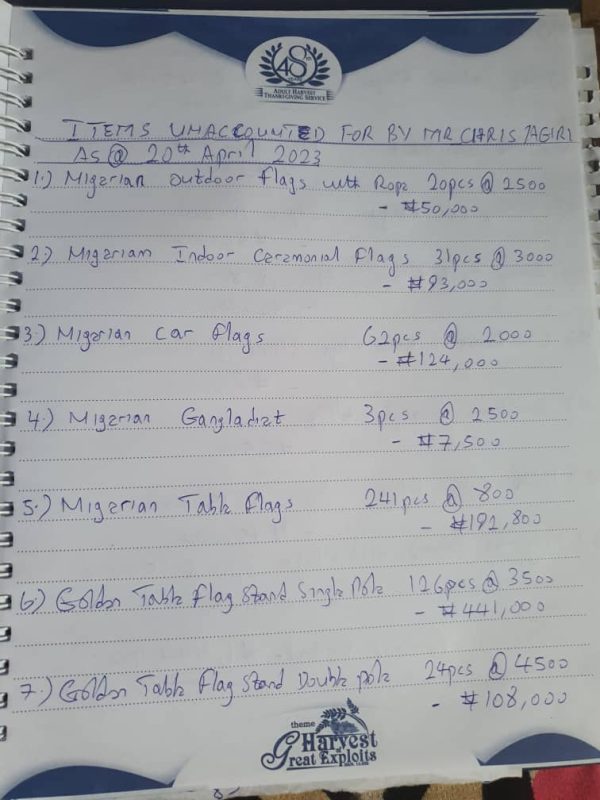 48th
ADULT HARVEST
THANKSGIVING SERVICE
ITEMS UNACCOUNTED FOR BY MR CHRIS
AS @ 20th April 2023
1.) Nigerian outdoor flags with Rope 20pcs @ 2500
- ₦50,000
2) Nigerian Indoor Ceremonial Flags 31pcs @ 3000
- ₦93,000
3.) Nigerian Car flags 62pcs @ 2000
- ₦124,000
4.) Nigerian Gangladiet 3pcs @ 2500
- ₦7,500
5.) Nigerian Table Flags 241pcs @ 800
- ₦192,800
6.) Golden Table Flag Stand Single Pole 126pcs @ 3500
- ₦441,000
7.) Golden Table Flag Stand Double pole 24pcs @ 4500
- ₦108,000
theme
Harvest
Great Exploits